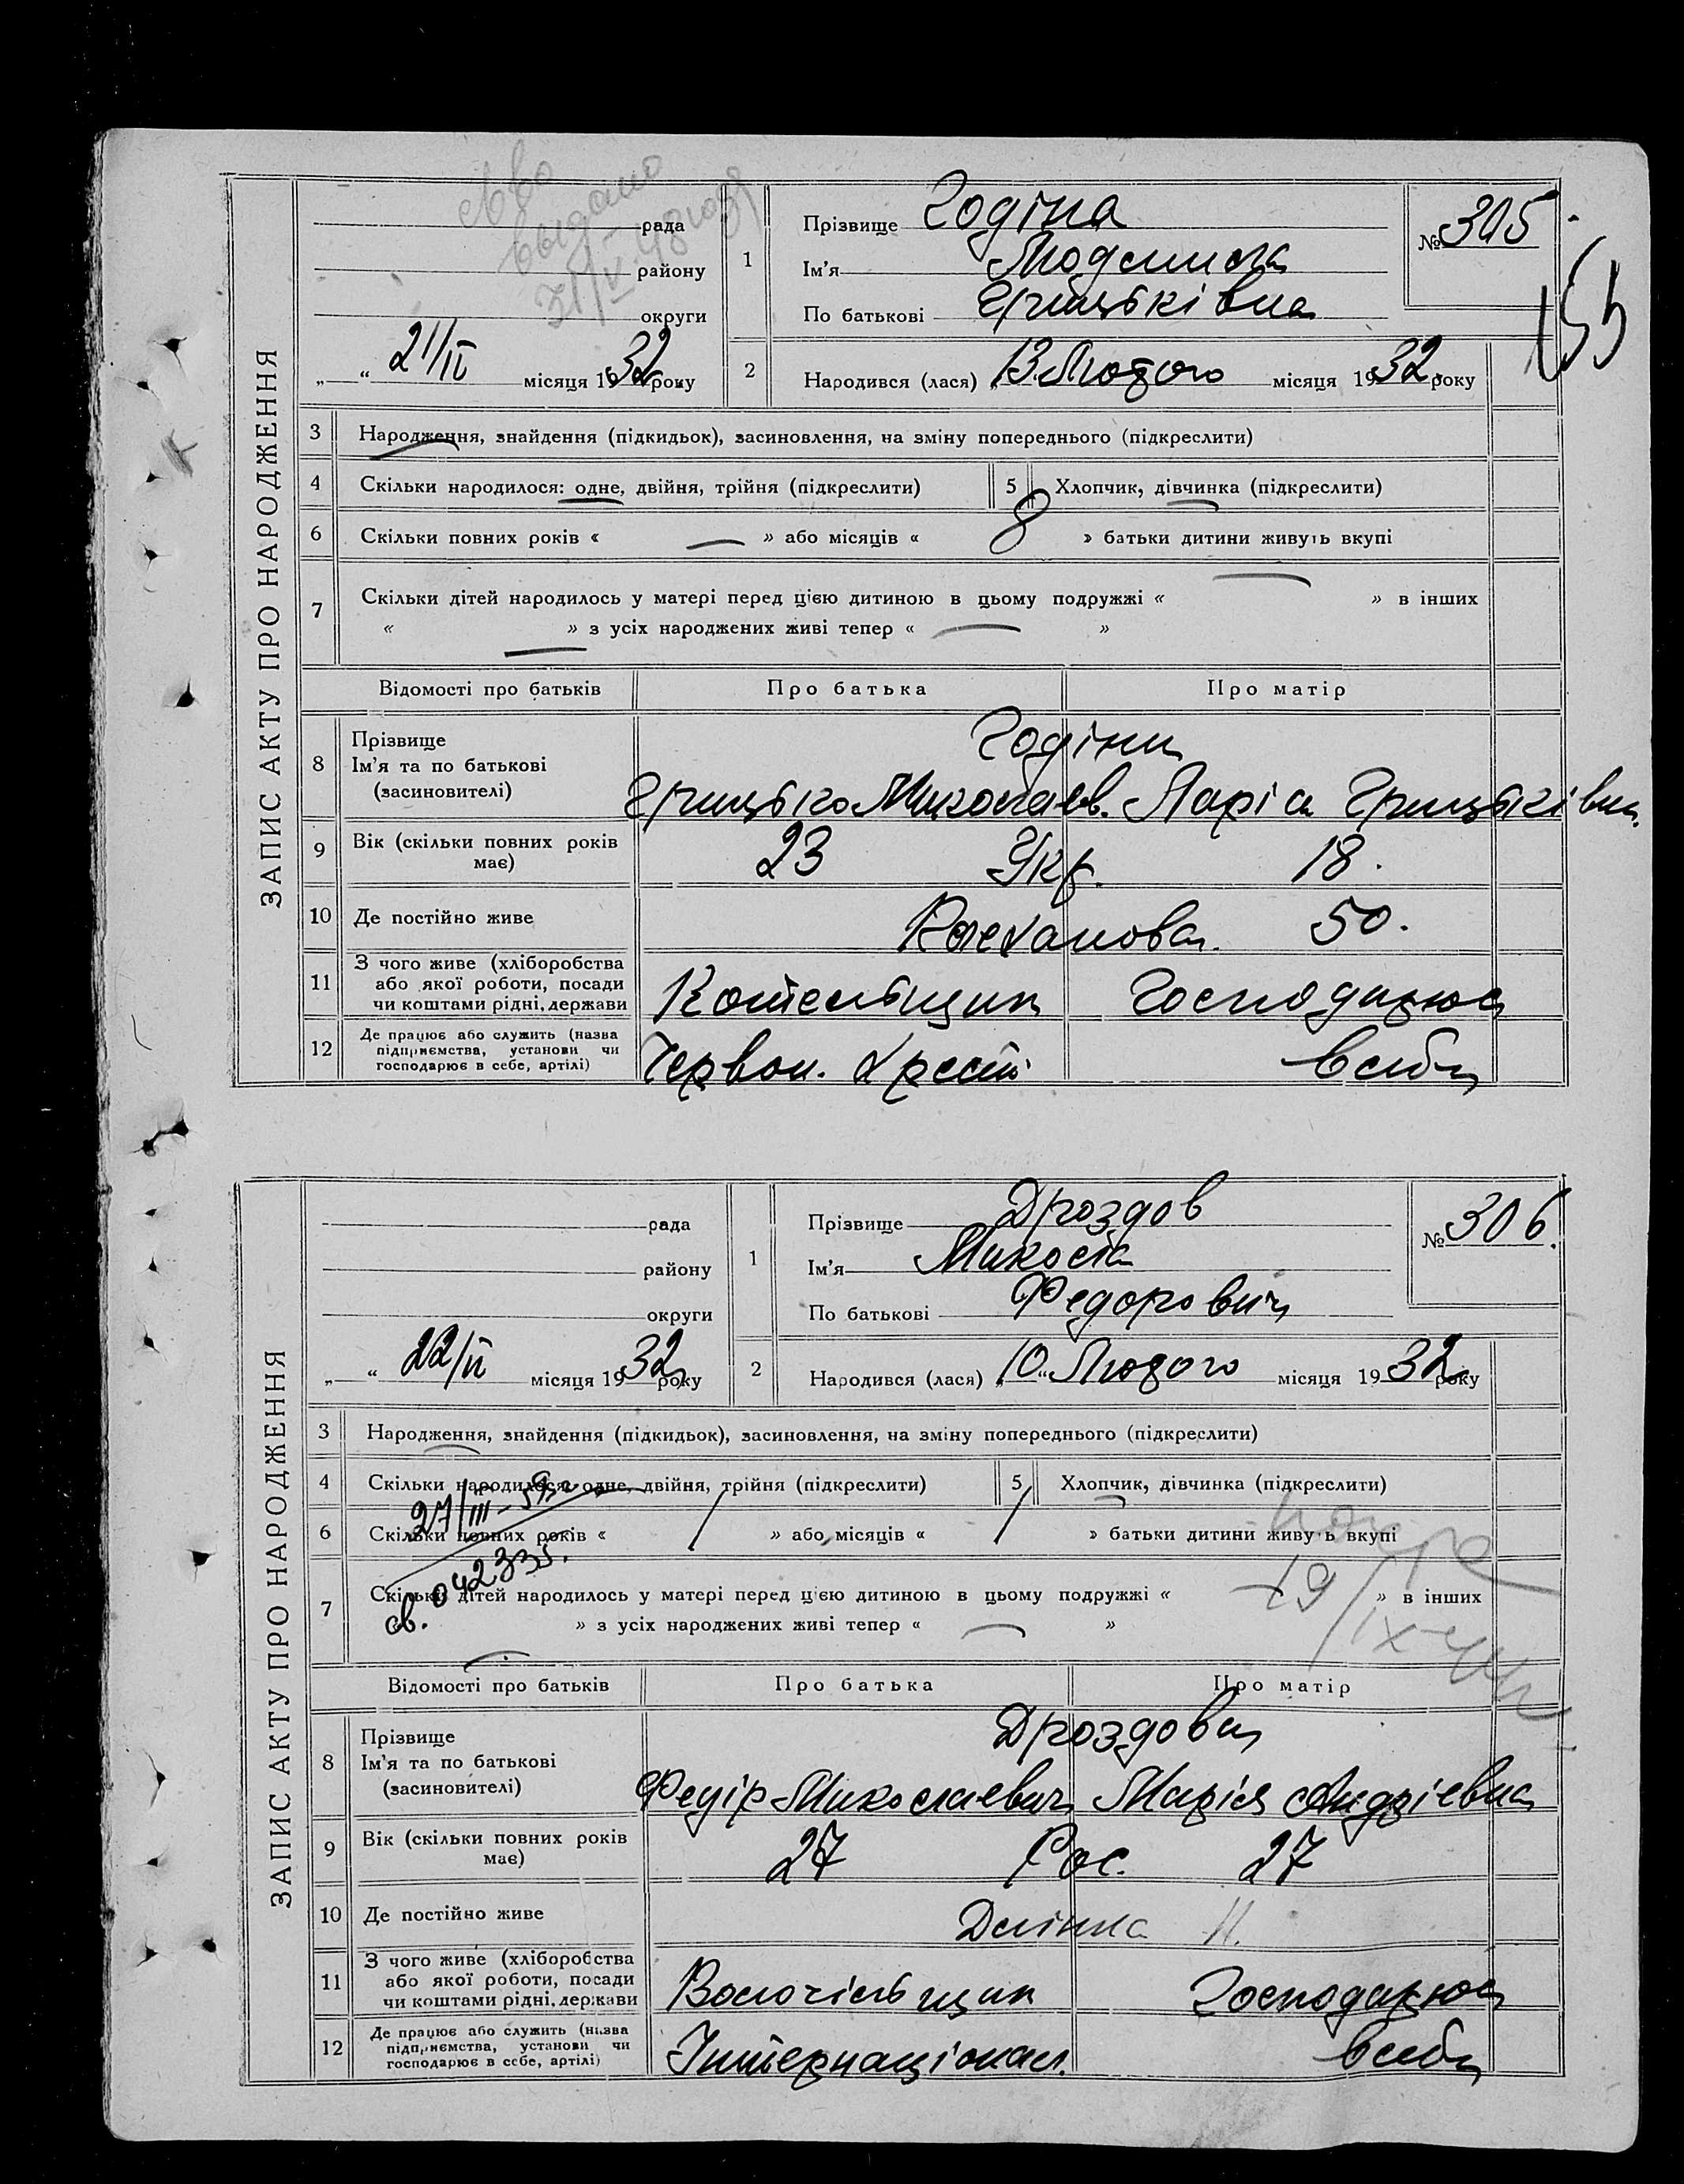 ЗАПИС АКТУ ПРО НАРОДЖЕННЯ
выдано
рада
району
округи
„ “ 21/II місяця 1932 року
1
Прізвище Годіна
Ім'я Людмила
По батькові Грицьківна
№ 305
155
2
Народився (лася) 13 Лютого місяця 1932 року
3 Народження, знайдення (підкидьок), засиновлення, на зміну попереднього (підкреслити)
4 Скільки народилося: одне, двійня, трійня (підкреслити)
5 Хлопчик, дівчинка (підкреслити)
6 Скільки повних років « — » або місяців « 8 » батьки дитини живуть вкупі
7 Скільки дітей народилось у матері перед цією дитиною в цьому подружжі « — » в інших
« — » з усіх народжених живі тепер « — »
Відомості про батьків Про батька Про матір
8 Прізвище
Ім'я та по батькові
(засновителі)
Годіни
Грицько Миколаєв. Ларіса Грицьківна
9 Вік (скільки повних років має)
23 Укр. 18.
10 Де постійно живе
50.
11 З чого живе (хліборобства
або якої роботи, посади
чи коштами рідні, держави
Котельщик Господарює
12 Де працює або служить (назва
підприємства, установи чи
господарює в себе, артілі)
Червон. всебе
ЗАПИС АКТУ ПРО НАРОДЖЕННЯ
рада
району
округи
„ “ 22/II місяця 1932 року
1
Прізвище Дроздов
Ім'я Микола
По батькові Федорович
№ 306.
2
Народився (лася) „10“ Лютого місяця 1932 року
3 Народження, знайдення (підкидьок), засиновлення, на зміну попереднього (підкреслити)
4 Скільки народилося: одне, двійня, трійня (підкреслити)
5 Хлопчик, дівчинка (підкреслити)
27/III-
6 Скільки повних років « / » або місяців « / » батьки дитини живуть вкупі
св. 042335.
7 Скільки дітей народилось у матері перед цією дитиною в цьому подружжі « — » в інших
19/IX
« — » з усіх народжених живі тепер « — »
Відомості про батьків Про батька Про матір
8 Прізвище
Ім'я та по батькові
(засиновителі)
Дроздова
Федір Миколаевич Марія Андріевна
9 Вік (скільки повних років має)
27 Рос. 27
10 Де постійно живе
11.
11 З чого живе (хліборобства
або якої роботи, посади
чи коштами рідні, держави
Волочільщик Господарює
12 Де працює або служить (назва
підприємства, установи чи
господарює в себе, артілі)
Інтернаціонал. всебе